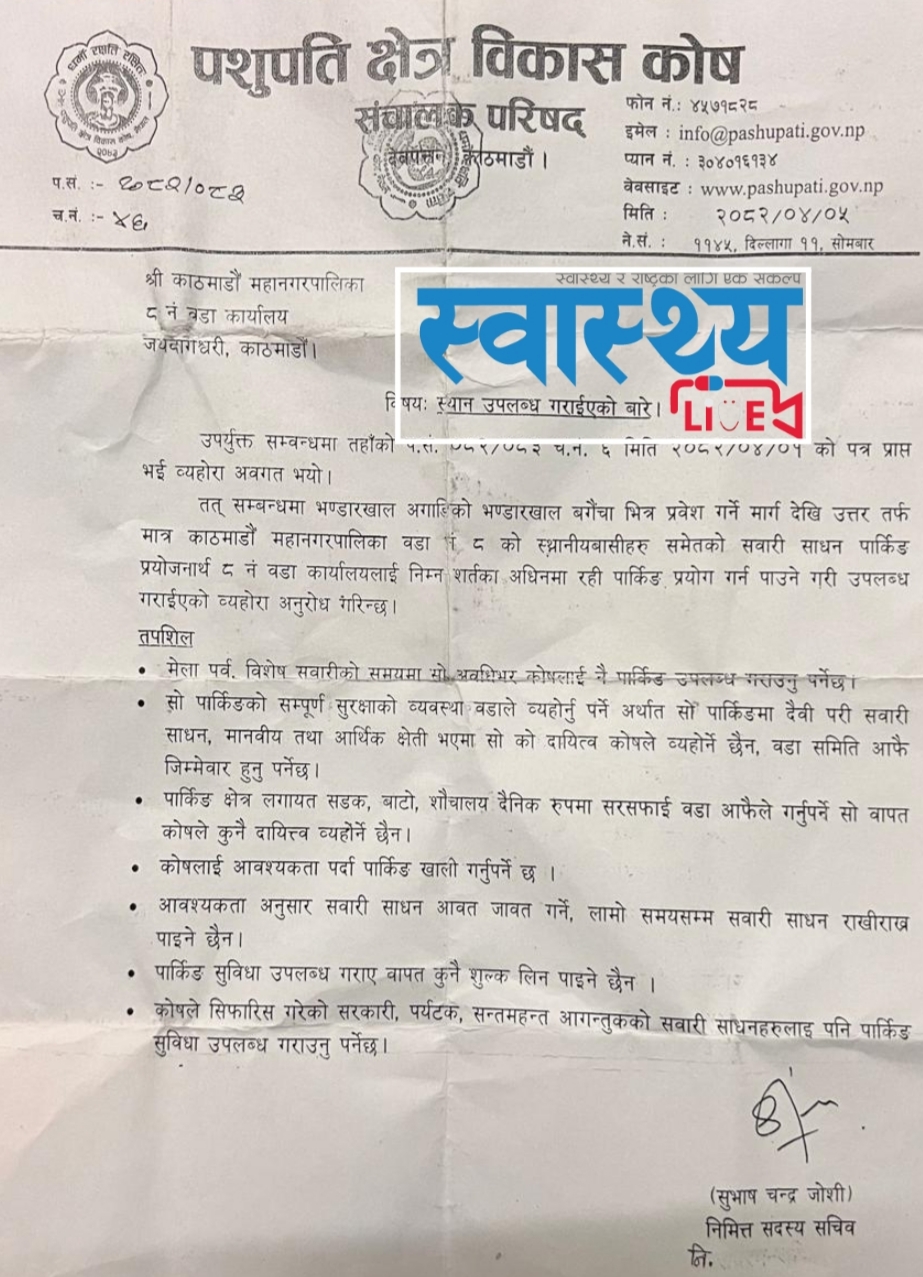 पशुपति क्षेत्र विकास कोष
संचालक परिषद
देवपत्तन काठमाडौं ।
फोन नं.: ४५७१८२८
इमेल : info@pashupati.gov.np
प्यान नं. : ३०४०१६१३४
वेवसाइट : www.pashupati.gov.np
मिति : २०८२/०४/०५
ने.सं. : ११४५, दिल्लागा ११, सोमबार
प.सं. :- २०८२/०८३
च.नं. :- ४६
श्री काठमाडौं महानगरपालिका
८ नं वडा कार्यालय
जयवागेश्वरी, काठमाडौं।
स्वास्थ्य र राष्ट्रका लागि एक संकल्प
स्वास्थ्य
LIVE
विषयः स्थान उपलब्ध गराईएको बारे।
उपर्युक्त सम्वन्धमा तहाँको प.सं. ०८२/०८३ च.नं. ६ मिति २०८२/०४/०५ को पत्र प्राप्त
भई व्यहोरा अवगत भयो।
तत् सम्बन्धमा भण्डारखाल अगाडिको भण्डारखाल बगैंचा भित्र प्रवेश गर्ने मार्ग देखि उत्तर तर्फ
मात्र काठमाडौं महानगरपालिका वडा नं ८ को स्थानीयबासीहरु समेतको सवारी साधन पार्किङ
प्रयोजनार्थ ८ नं वडा कार्यालयलाई निम्न शर्तका अधिनमा रही पार्किङ प्रयोग गर्न पाउने गरी उपलब्ध
गराईएको व्यहोरा अनुरोध गरिन्छ।
तपशिल
• मेला पर्व. विशेष सवारीको समयमा सो अवधिभर कोषलाई नै पार्किङ उपलब्ध गराउनु पर्नेछ।
• सो पार्किङको सम्पूर्ण सुरक्षाको व्यवस्था वडाले व्यहोर्नु पर्ने अर्थात सो पार्किङमा दैवी परी सवारी
साधन, मानवीय तथा आर्थिक क्षेती भएमा सो को दायित्व कोषले व्यहोर्ने छैन, वडा समिति आफै
जिम्मेवार हुनु पर्नेछ।
• पार्किङ क्षेत्र लगायत सडक, बाटो, शौचालय दैनिक रुपमा सरसफाई वडा आफैले गर्नुपर्ने सो वापत
कोषले कुनै दायित्त्व व्यहोर्ने छैन।
• कोषलाई आवश्यकता पर्दा पार्किङ खाली गर्नुपर्ने छ ।
• आवश्यकता अनुसार सवारी साधन आवत जावत गर्ने, लामो समयसम्म सवारी साधन राखीराख्न
पाइने छैन।
• पार्किङ सुविधा उपलब्ध गराए वापत कुनै शुल्क लिन पाइने छैन ।
• कोषले सिफारिस गरेको सरकारी, पर्यटक, सन्तमहन्त आगन्तुकको सवारी साधनहरुलाइ पनि पार्किङ
सुविधा उपलब्ध गराउनु पर्नेछ।
(सुभाष चन्द्र जोशी)
निमित्त सदस्य सचिव
नि.